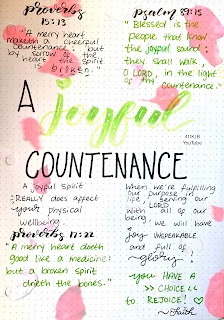 proverbs
15:13
"A merry heart
maketh a cheerful
countenance: but
by sorrow of the
heart the spirit
is broken."
psalm 89:15
"Blessed is the
people that know
the joyful sound:
they shall walk,
O LORD, in the light
of thy countenance."
A Joyful
411KJB
YouTube
COUNTENANCE
A Joyful Spirit
REALLY does affect
your physical
wellbeing.
proverbs 17:22
"A merry heart doeth
good like a medicine:
but a broken spirit
drieth the bones."
When we're fulfilling
our purpose in
life, serving our
LORD
with all of our
being,
we will have
Joy UNSPEAKABLE
and full of
~glory!
~you HAVE A
>> CHOICE <<
to REJOICE!
~Faith